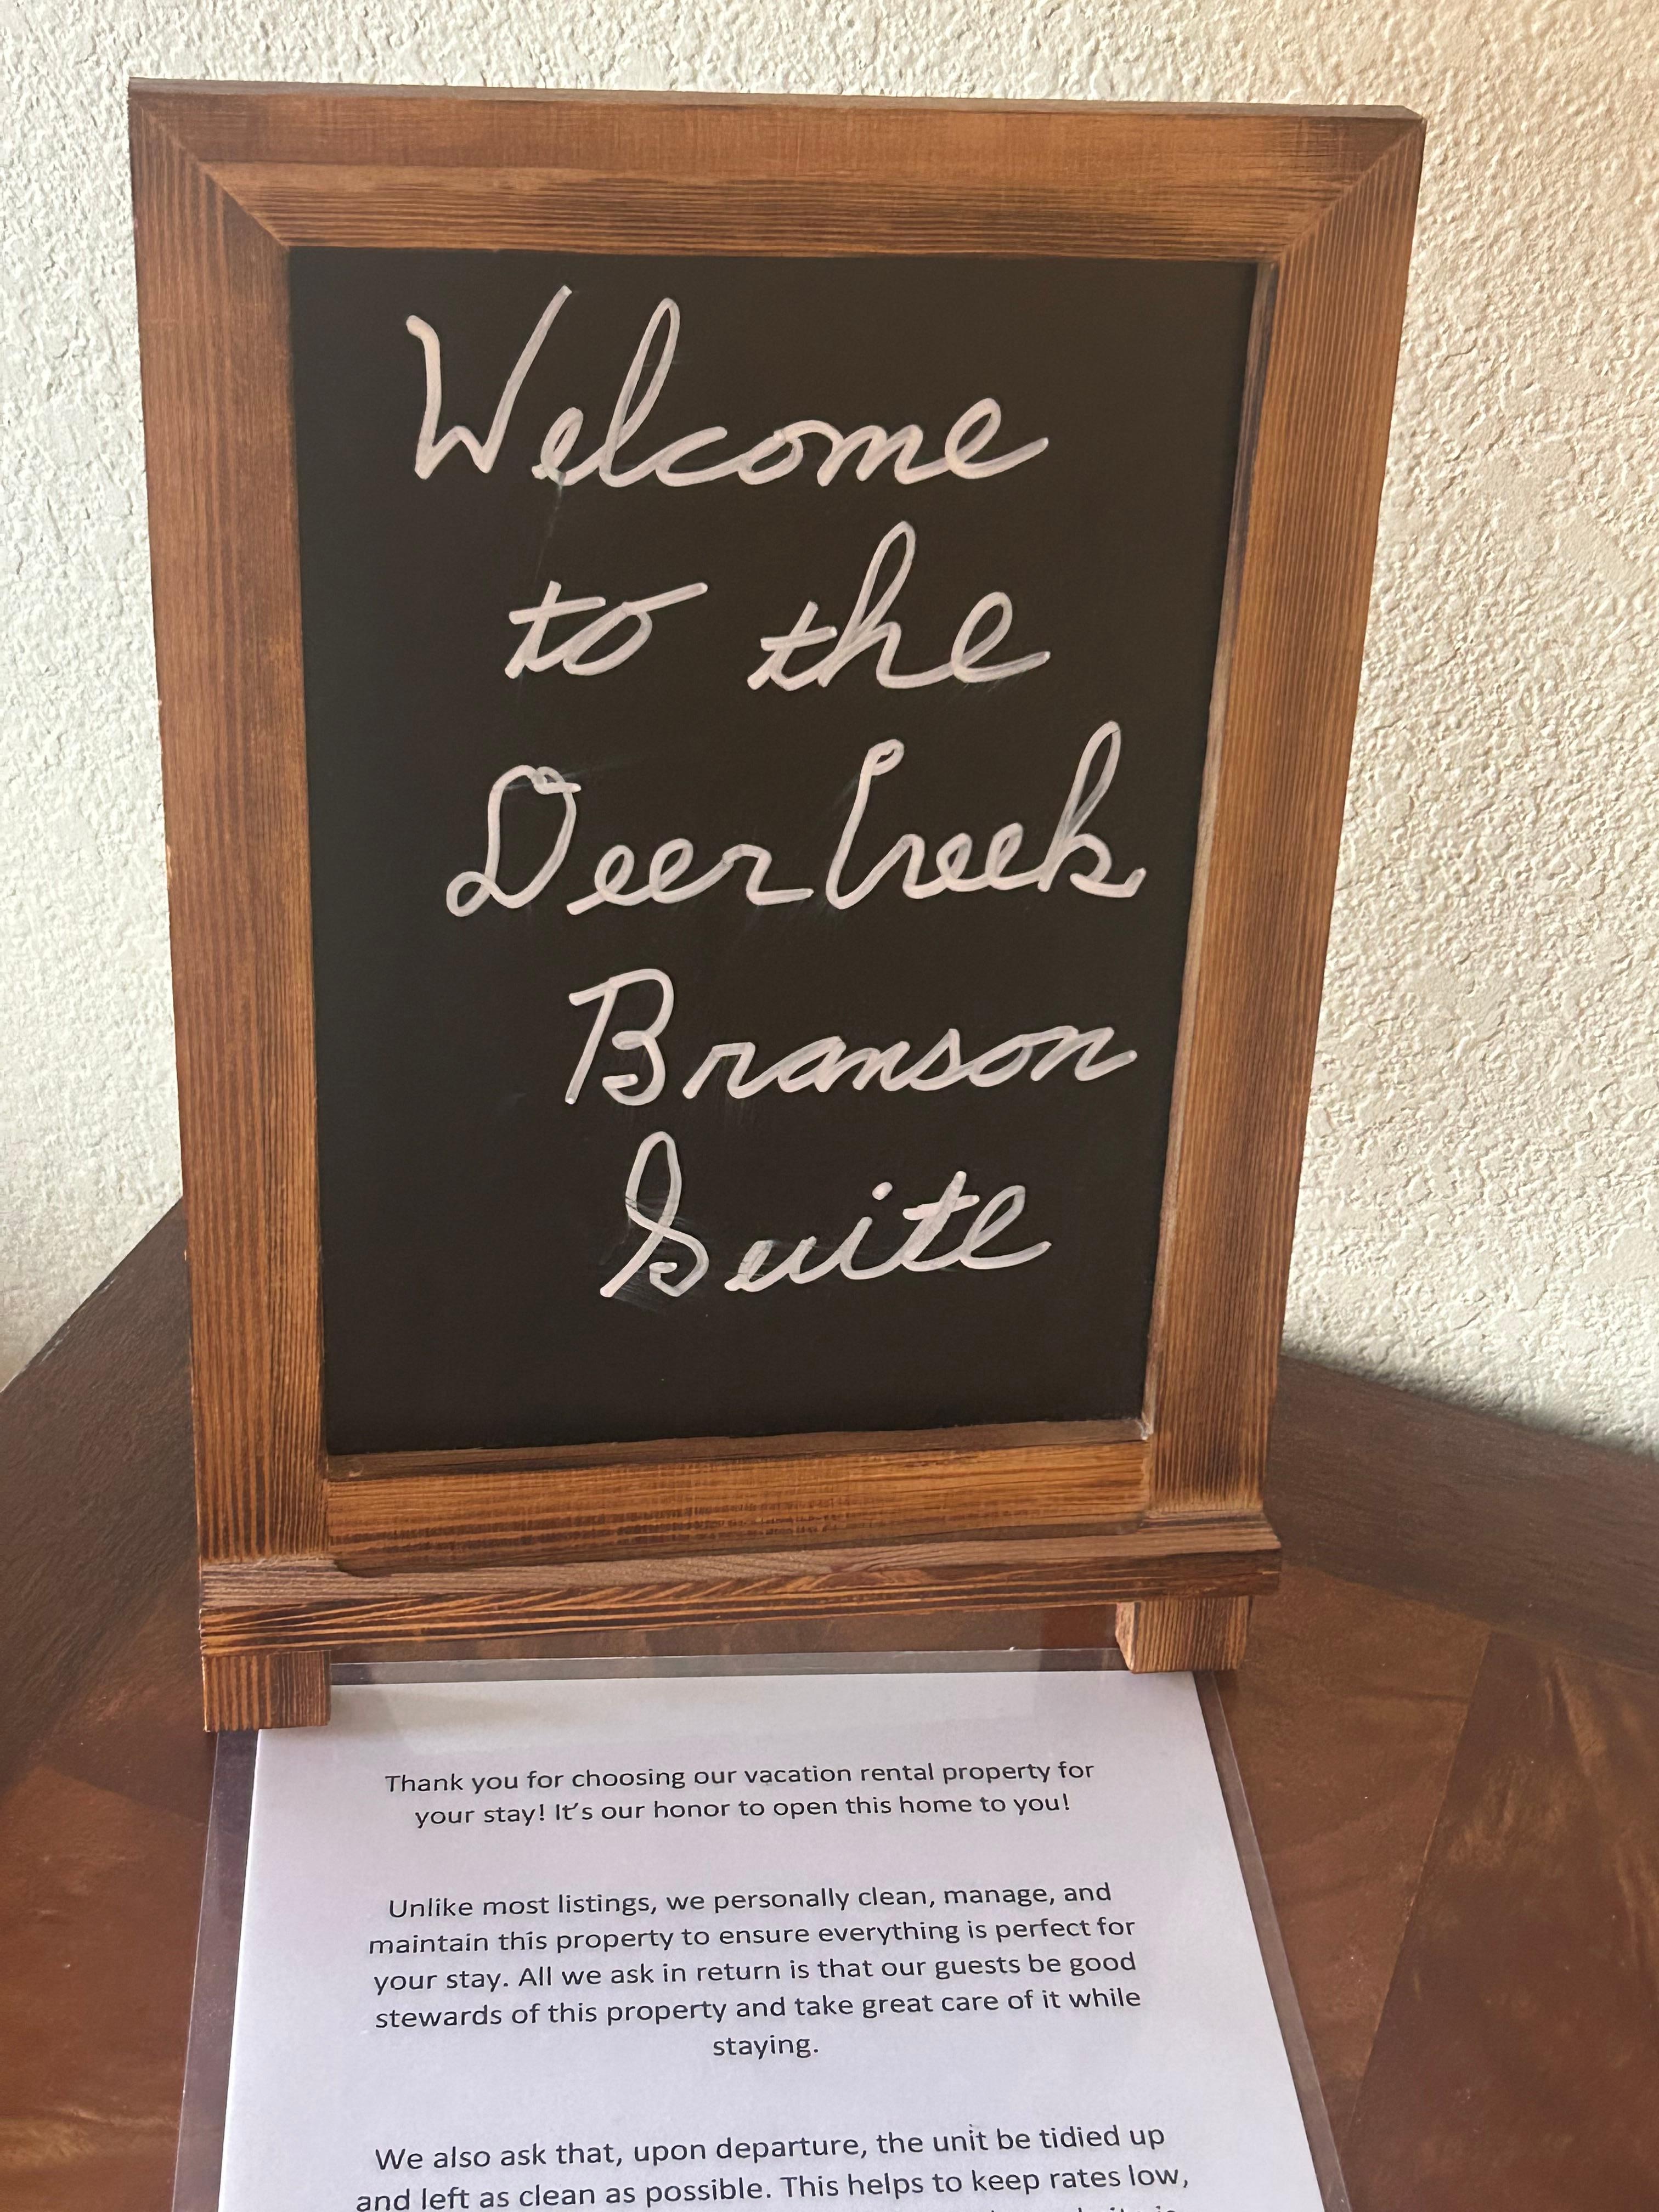 Welcome
to the
Deer Creek
Branson
Suite
Thank you for choosing our vacation rental property for
your stay! It's our honor to open this home to you!
Unlike most listings, we personally clean, manage, and
maintain this property to ensure everything is perfect for
your stay. All we ask in return is that our guests be good
stewards of this property and take great care of it while
staying.
We also ask that, upon departure, the unit be tidied up
and left as clean as possible. This helps to keep rates low,